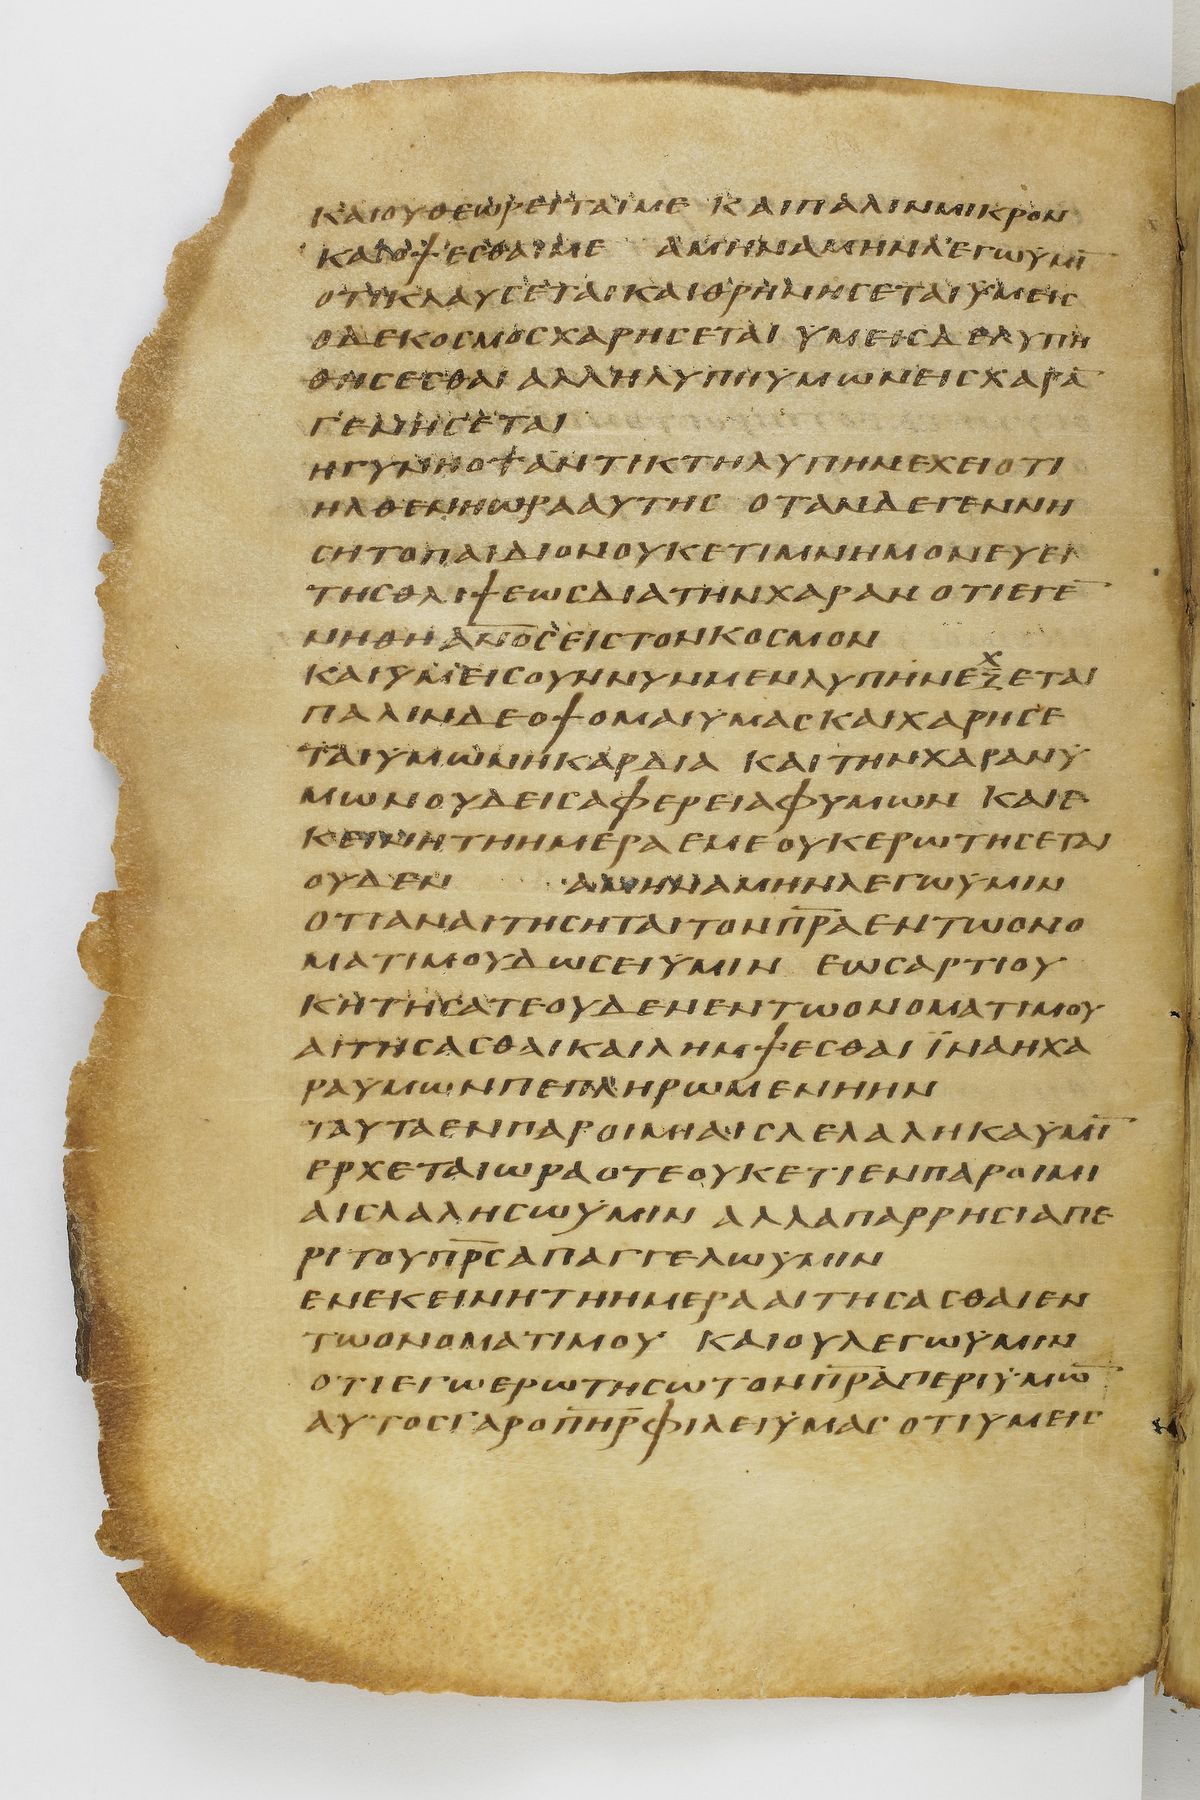 ΚΑΙΟΥΘΕΩΡΕΙΤΑΙΜΕ ΚΑΙΠΑΛΙΝΜΙΚΡΟΝ
ΚΑΙΟΨΕΣΘΑΙΜΕ ΑΜΗΝΑΜΗΝΛΕΓΩΥΜΙ̅
ΟΤΙΚΛΑΥΣΕΤΑΙΚΑΙΘΡΗΝΗΣΕΤΑΙΫΜΕΙΣ
ΟΔΕΚΟΣΜΟΣΧΑΡΗΣΕΤΑΙ ΥΜΕΙΣΔΕΛΥΠΗ
ΘΗΣΕΣΘΑΙΑΛΛΗΛΥΠΗΥΜΩΝΕΙΣΧΑΡΑ̅
ΓΕΝΗΣΕΤΑΙ
ΗΓΥΝΗΟΤΑΝΤΙΚΤΗΛΥΠΗΝΕΧΕΙΟΤΙ
ΗΛΘΕΝΗΩΡΑΑΥΤΗΣ ΟΤΑΝΔΕΓΕΝΝΗ
ΣΗΤΟΠΑΙΔΙΟΝΟΥΚΕΤΙΜΝΗΜΟΝΕΥΕΙ
ΤΗΣΘΛΙΨΕΩΣΔΙΑΤΗΝΧΑΡΑΝΟΤΙΕΓΕ̅
ΝΗΘΗΑ̅Ν̅Ο̅Σ̅ΕΙΣΤΟΝΚΟΣΜΟΝ
ΚΑΙΫΜΕΙΣΟΥΝΝΥΝΜΕΝΛΥΠΗΝΕΧΕΤΑΙ
ΠΑΛΙΝΔΕΟΨΟΜΑΙΫΜΑΣΚΑΙΧΑΡΗΣΕ
ΤΑΙΥΜΩΝΗΚΑΡΔΙΑ ΚΑΙΤΗΝΧΑΡΑΝΫ
ΜΩΝΟΥΔΕΙΣΑΦΕΡΕΙΑΦΥΜΩΝ ΚΑΙΕ
ΚΕΙΝΗΤΗΗΜΕΡΑΕΜΕΟΥΚΕΡΩΤΗΣΕΤΑΙ
ΟΥΔΕΝ ΑΜΗΝΑΜΗΝΛΕΓΩΫΜΙΝ
ΟΤΙΑΝΑΙΤΗΣΗΤΑΙΤΟΝΠ̅Ρ̅Α̅ΕΝΤΩΟΝΟ
ΜΑΤΙΜΟΥΔΩΣΕΙΫΜΙΝ ΕΩΣΑΡΤΙΟΥ
ΚΗΤΗΣΑΤΕΟΥΔΕΝΕΝΤΩΟΝΟΜΑΤΙΜΟΥ
ΑΙΤΗΣΑΣΘΑΙΚΑΙΛΗΜΨΕΣΘΑΙΪΝΑΗΧΑ
ΡΑΥΜΩΝΠΕΠΛΗΡΩΜΕΝΗΗΝ
ΤΑΥΤΑΕΝΠΑΡΟΙΜΙΑΙΣΛΕΛΑΛΗΚΑΥΜΙ̅
ΕΡΧΕΤΑΙΩΡΑΟΤΕΟΥΚΕΤΙΕΝΠΑΡΟΙΜΙ
ΑΙΣΛΑΛΗΣΩΫΜΙΝ ΑΛΛΑΠΑΡΡΗΣΙΑΠΕ
ΡΙΤΟΥΠ̅Ρ̅Σ̅ΑΠΑΓΓΕΛΩΥΜΙΝ
ΕΝΕΚΕΙΝΗΤΗΗΜΕΡΑΑΙΤΗΣΑΣΘΑΙΕΝ
ΤΩΟΝΟΜΑΤΙΜΟΥ ΚΑΙΟΥΛΕΓΩΫΜΙΝ
ΟΤΙΕΓΩΕΡΩΤΗΣΩΤΟΝΠ̅Ρ̅Α̅ΠΕΡΙΫΜΩ̅
ΑΥΤΟΣΓΑΡΟΠ̅Η̅Ρ̅ΦΙΛΕΙΫΜΑΣΟΤΙΥΜΕΙΣ